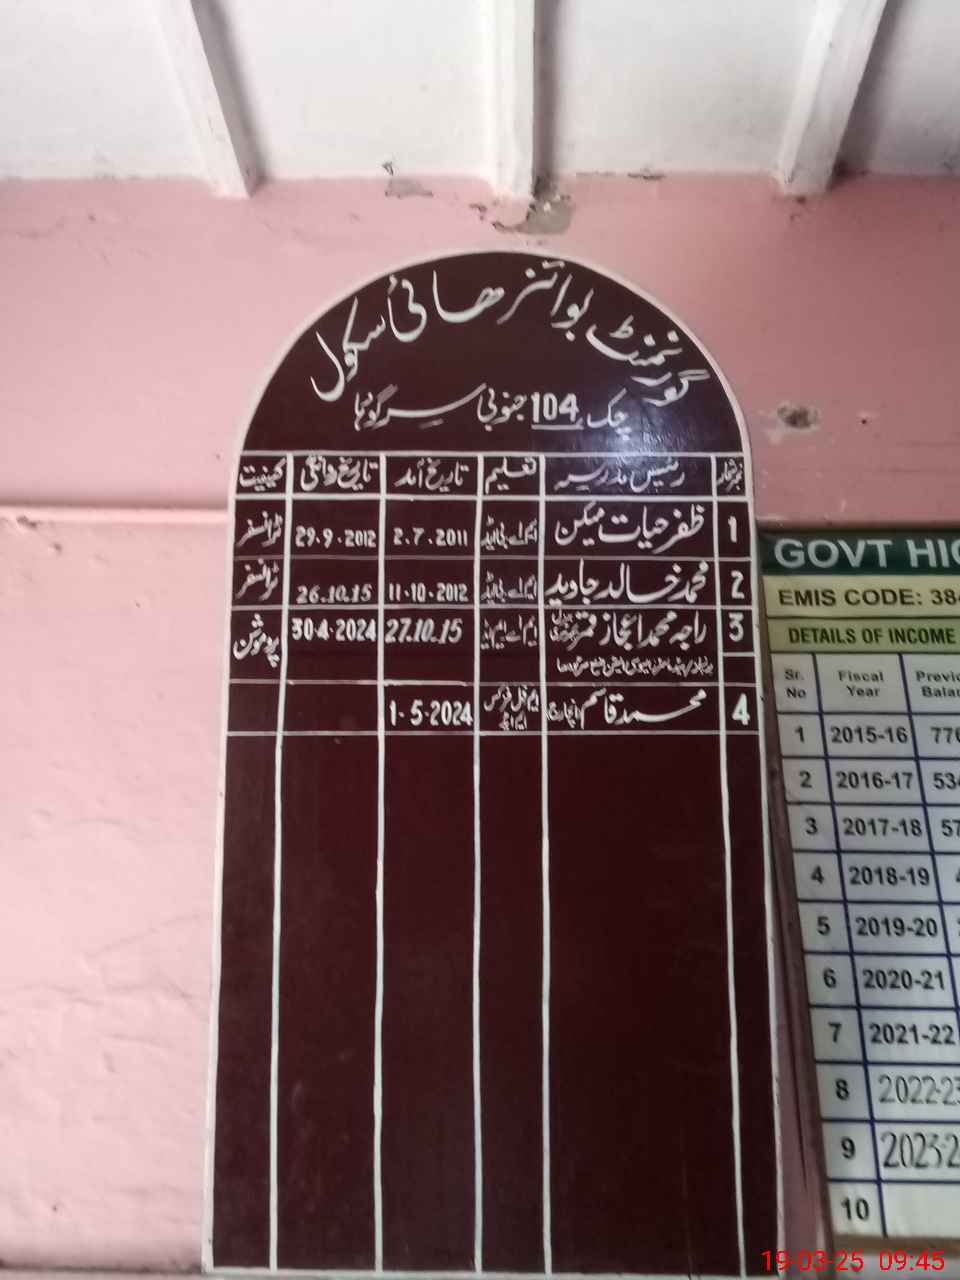 گورنمنٹ بوائز ھائی سکول
چک 104 جنوبی سرگودہا
نمبر شمار رئیس مدرسہ تعلیم تاریخ آمد تاریخ روانگی کیفیت
1 ظفر حیات میکن ایم اے بی ایڈ 2.7.2011 29.9.2012 ٹرانسفر
2 محمد خالد جاوید ایم اے بی ایڈ 11-10-2012 26.10.15 ٹرانسفر
3 راجہ محمد اعجاز قمر ایم اے ایم ایڈ 27.10.15 30.4.2024 پروموشن
4 محمد قاسم انچارج ایم فل فزکس ایم ایڈ 1-5-2024
GOVT HIG
EMIS CODE: 384
DETAILS OF INCOME
Sr. No Fiscal Year Previo Balan
1 2015-16 776
2 2016-17 534
3 2017-18 57
4 2018-19
5 2019-20
6 2020-21
7 2021-22
8 2022-23
9 2023-2
10
19-03-25 09:45